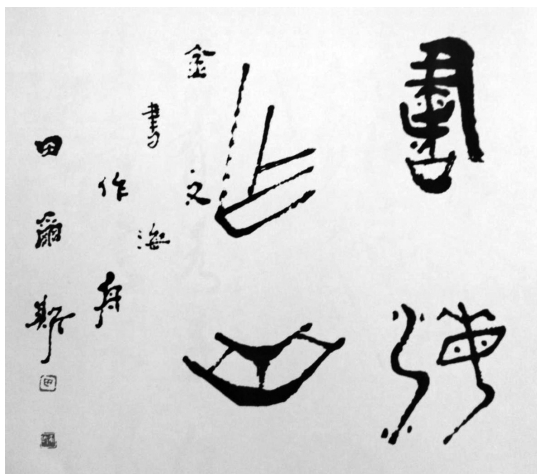 書海
作舟
金文
書海
作舟
田爾斯